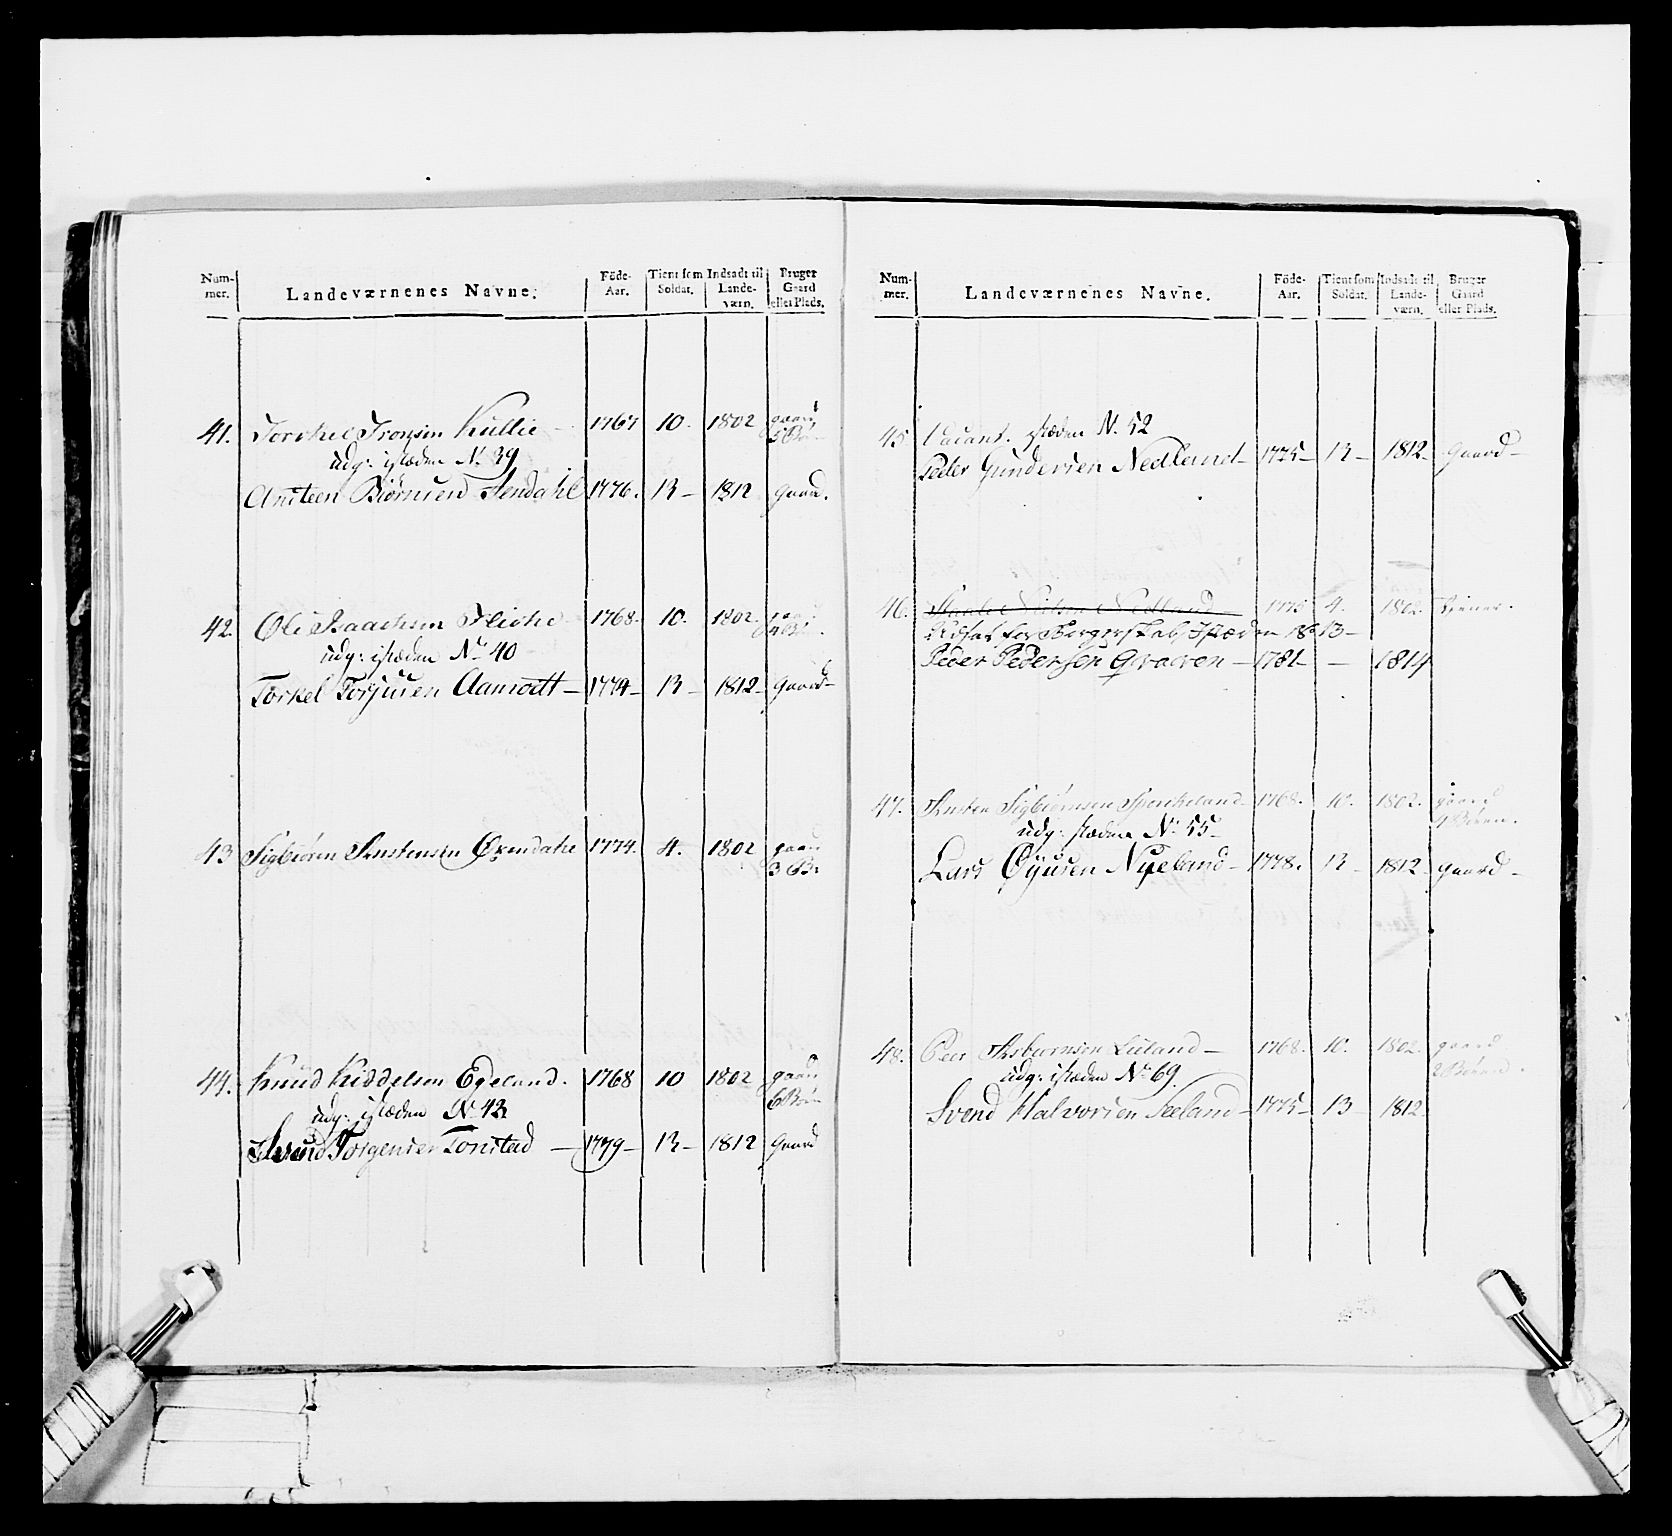 Num-
mer.
Landeværnenes Navne.
Föde-
Aar.
Tient som
Soldat.
Indsadt til
Lande-
værn.
Bruger
Gaard
eller Plads.
41. Torchel Tronsen Kullie 1767 10. 1802 gaard
5 Bør
udg: istæden No 39
Ansteen Biørnsen Sendahl 1776. 13 1812 gaard.
42. Ole Isaachsen 1768. 10. 1802. gaard
4 B.
udg: istæden No 40
Torkel Torjusen Aamodt 1774 13 1812 gaard
43 Sigbiøren Anstensen Øxendahl 1774. 4. 1802 gaard
3 B.
44. Knud Kiddelsen Egeland. 1768 10 1802 gaard
6 Bør
udg: istæden No 42
Torgensen Tonstad 1779 13 1812 gaard
Num-
mer.
Landeværnenes Navne.
Föde-
Aar.
Tient som
Soldat.
Indsadt til
Lande-
værn.
Bruger
Gaard
eller Plads.
45 Vacant. istæden N. 52
Peder Gundersen Nedland 1775 13 1812 gaard
46. Nilsen Nedland 1775 4. 1802 tiener.
Udsat for Borgerskab Istæden 1813
Peder Pedersen Qvaren 1781 1814
47. Ansten Sigbiørnsen Sporkeland 1768. 10. 1802. gaard
4 Børen.
udg: istæden No 55
Lars Øyusen Nyeland 1778. 13 1812 gaard
48. Peer Asbiørnsen Lieland 1768. 10. 1802. gaard
2 Børen.
udg: istæden No 69
Svend Halvorsen Seeland 1775 13 1812